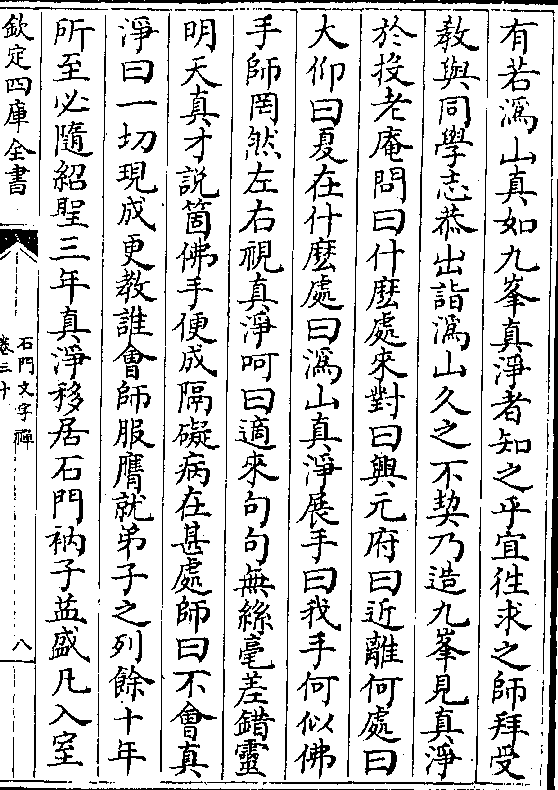 有若溈山真如九峯真淨者知之乎宜往求之師拜受
教與同學志恭出詣溈山久之不契乃造九峯見真淨
於投老庵問曰什麽處來對曰興元府曰近離何處曰
大仰曰夏在什麽處曰溈山真淨展手曰我手何似佛
手師罔然左右視真淨呵曰適來句句無絲毫差錯靈
明天真才說箇佛手便成隔礙病在甚處師曰不會真
淨曰一切現成更教誰會師服膺就弟子之列餘十年
所至必隨紹聖三年真淨移居石門衲子益盛凡入室
欽定四庫全書
石門文字禪
卷三十
八